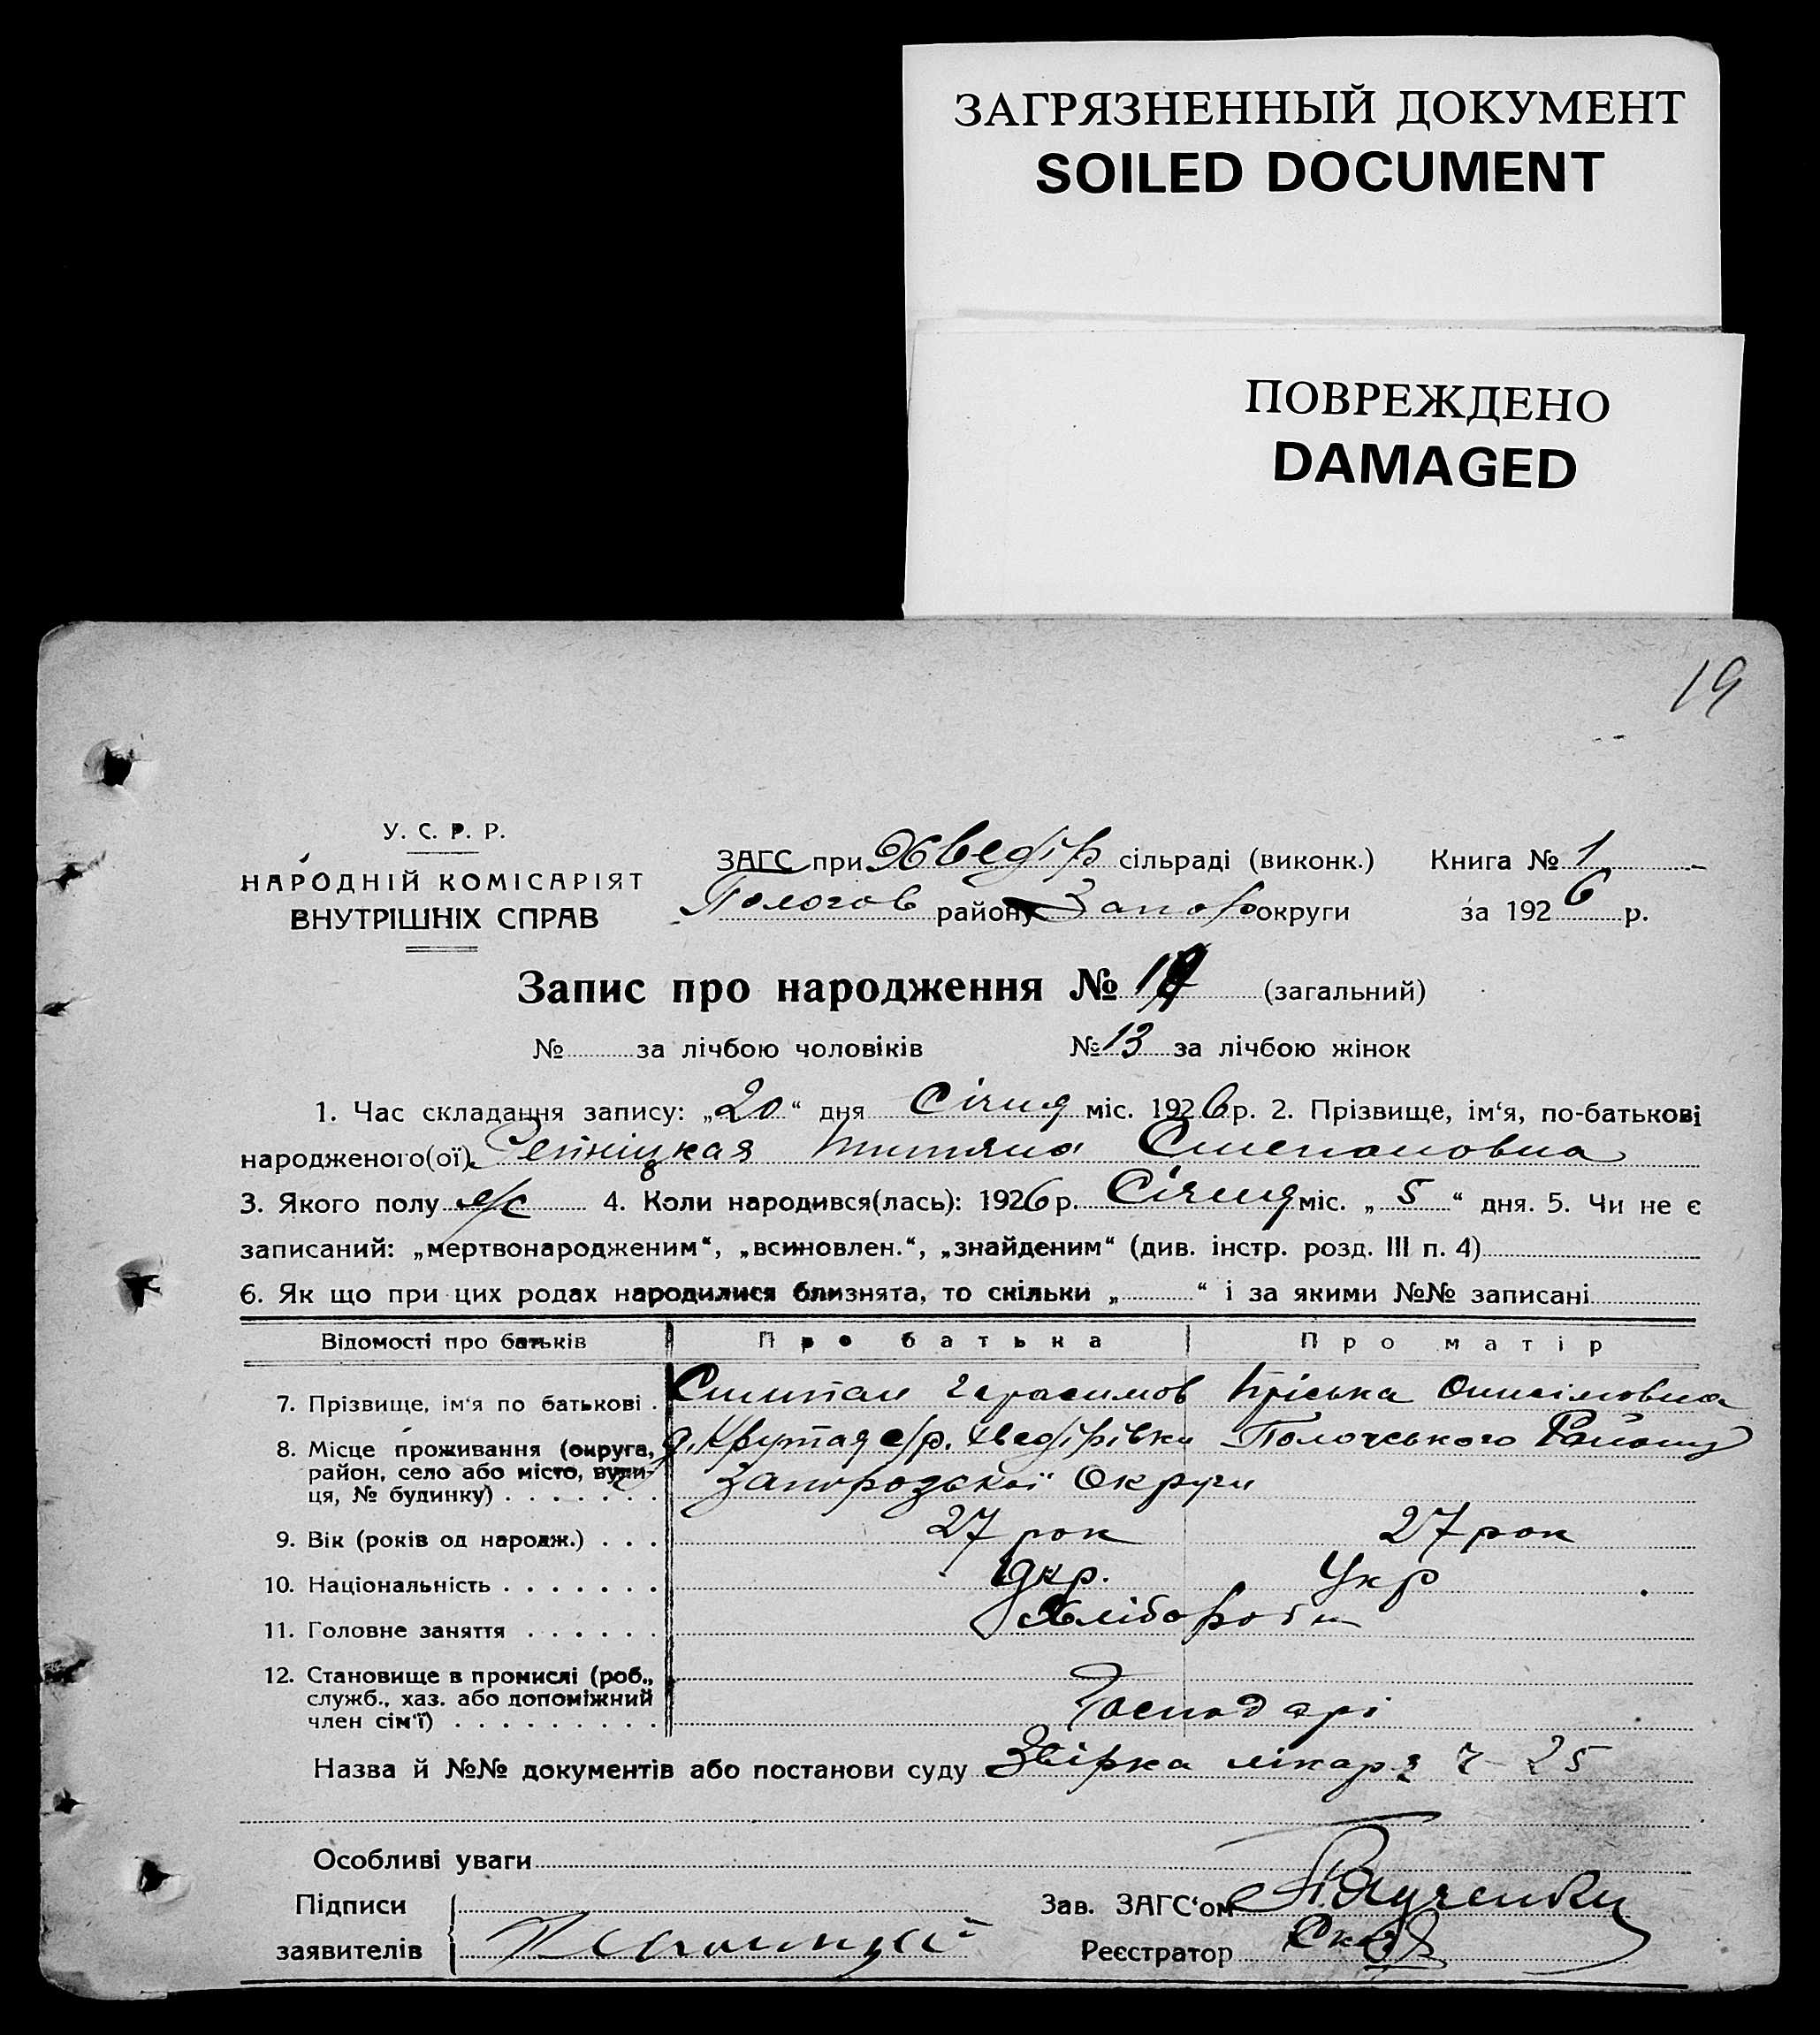 ЗАГРЯЗНЕННЫЙ ДОКУМЕНТ
SOILED DOCUMENT
ПОВРЕЖДЕНО
DAMAGED
19
У. С. Р. Р.
НАРОДНІЙ КОМІСАРІЯТ
ВНУТРІШНІХ СПРАВ
ЗАГС при Хведір сільраді (виконк.) Книга № 1
Пологов району Запор округи за 1926 р.
Запис про народження № (загальний)
№ за лічбою чоловіків № 13 за лічбою жінок
1. Час складання запису: „20“ дня Січня міс. 1926 р. 2. Прізвище, ім‘я, по-батькові
народженого(ої) Степановна
3. Якого полу ж 4. Коли народився(лась): 1926 р. Січня міс. „5“ дня. 5. Чи не є
записаний: „мертвонародженим“, „всиновлен.“, „знайденим“ (див. інстр. розд. III п. 4)
6. Як що при цих родах народилися близнята, то скільки „ “ і за якими №№ записані
Відомості про батьків Про батька Про матір
7. Прізвище, ім‘я по батькові . Герасимов Пріська Онисімовна
8. Місце проживання (округа, район, село або місто, вули- ця, № будинку) . . . . . . . д. Крутая с/р. Хведірівки Пологського Району
Округи
9. Вік (років од народж.) . . . 27 рок 27 рок
10. Національність . . . . . . . Укр. Укр
11. Головне заняття . . . . . . Хлібороби
12. Становище в промислі (роб., служб., хаз. або допоміжний член сім‘ї) . . . . . . . . . Господарі
Назва й №№ документів або постанови суду лікаря 25
Особливі уваги
Підписи
заявителів
Зав. ЗАГС‘ом
Реєстратор